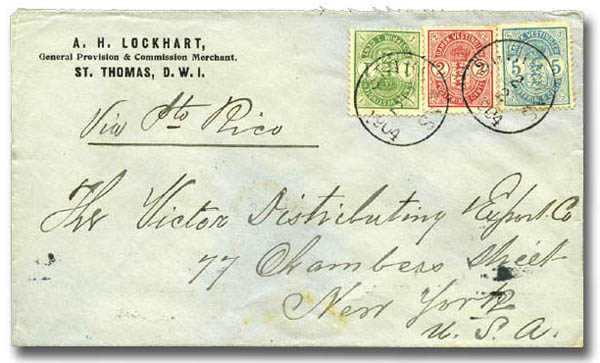 A. H. LOCKHART,
General Provision & Commission Merchant.
ST. THOMAS, D. W. I.
DANSK VESTINDIEN
2
5 5
1904
Via Pto Rico
The Victor Distributing & Export Co
77 Chambers Street
New York
U. S. A.